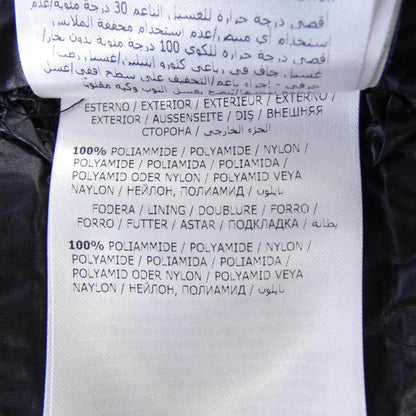 أقصى درجة حرارة للغسيل الناعم 30 درجة
استخدام أي مبيض/عدم استخدام مجففة الملابس
أقصى درجة حرارة للكوي 100 درجة مئوية بدون بخار/
ESTERNO / EXTERIOR / EXTERIEUR / EXTERNO /
EXTERIOR / AUSSENSEITE / DIŞ / ВНЕШНЯЯ
СТОРОНА / الجزء الخارجي
100% POLIAMMIDE / POLYAMIDE / NYLON /
POLYAMIDE / POLIAMIDA / POLIAMIDA /
POLYAMID ODER NYLON / POLYAMID VEYA
NAYLON / НЕЙЛОН, ПОЛИАМИД / نايلون
FODERA / LINING / DOUBLURE / FORRO /
FORRO / FUTTER / ASTAR / ПОДКЛАДКА / بطانة
100% POLIAMMIDE / POLYAMIDE / NYLON /
POLYAMIDE / POLIAMIDA / POLIAMIDA /
POLYAMID ODER NYLON / POLYAMID VEYA
NAYLON / НЕЙЛОН, ПОЛИАМИД / نايلون